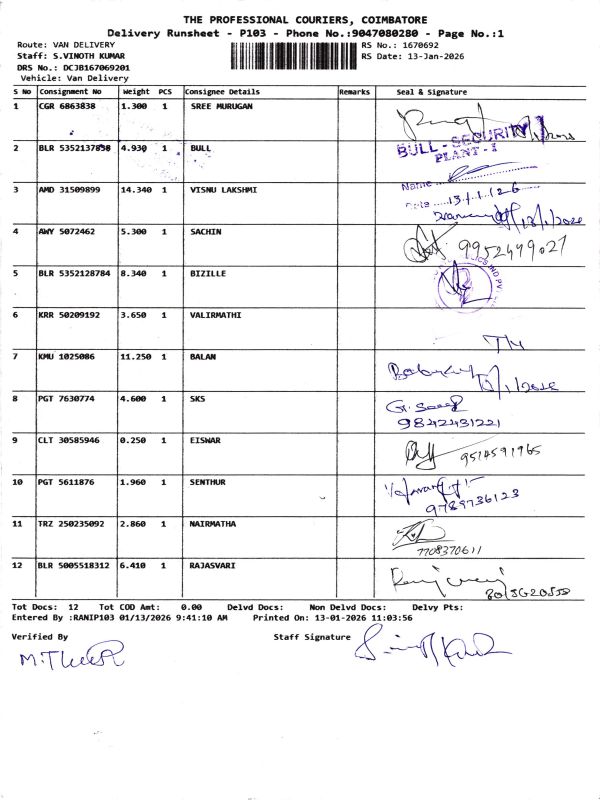 THE PROFESSIONAL COURIERS, COIMBATORE
Delivery Runsheet - P103 - Phone No.:9047080280 - Page No.:1
Route: VAN DELIVERY RS No.: 1670692
Staff: S.VINOTH KUMAR RS Date: 13-Jan-2026
DRS No.: DC3B167069201
Vehicle: Van Delivery
S No Consignment No Weight PCS Consignee Details Remarks Seal & Signature
1 CGR 6863838 1.300 1 SREE MURUGAN
2 BLR 5352137838 4.930 1 BULL
BULL - SECURITY
PLANT - I
Name
Date 13/1/26
3 AMD 31509899 14.340 1 VISNU LAKSHMI
13/1/2026
4 AWY 5072462 5.300 1 SACHIN
9952499027
5 BLR 5352128784 8.340 1 BIZILLE
6 KRR 50209192 3.650 1 VALIRMATHI
7 KMU 1025086 11.250 1 BALAN
8 PGT 7630774 4.600 1 SKS
9842431221
9 CLT 30585946 0.250 1 EISWAR
9514591965
10 PGT 5611876 1.960 1 SENTHUR
9789736123
11 TRZ 250235092 2.860 1 NAIRMATHA
7708370611
12 BLR 5005518312 6.410 1 RAJASVARI
Tot Docs: 12 Tot COD Amt: 0.00 Delvd Docs: Non Delvd Docs: Delvy Pts:
Entered By :RANIP103 01/13/2026 9:41:10 AM Printed On: 13-01-2026 11:03:56
Verified By Staff Signature